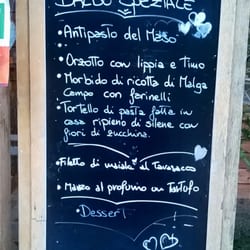 BALDO SPEZIALE
• Antipasto del Maso
• Orzotto con lippia e Timo
• Morbido di ricotta di Malga
Campo con farinelli
• Tortello di pasta fatta in
casa ripieno di silene con
fiori di zucchina.
• Filetto di maiale al Tarassaco
• Manzo al profumo di Tartufo
• Dessert